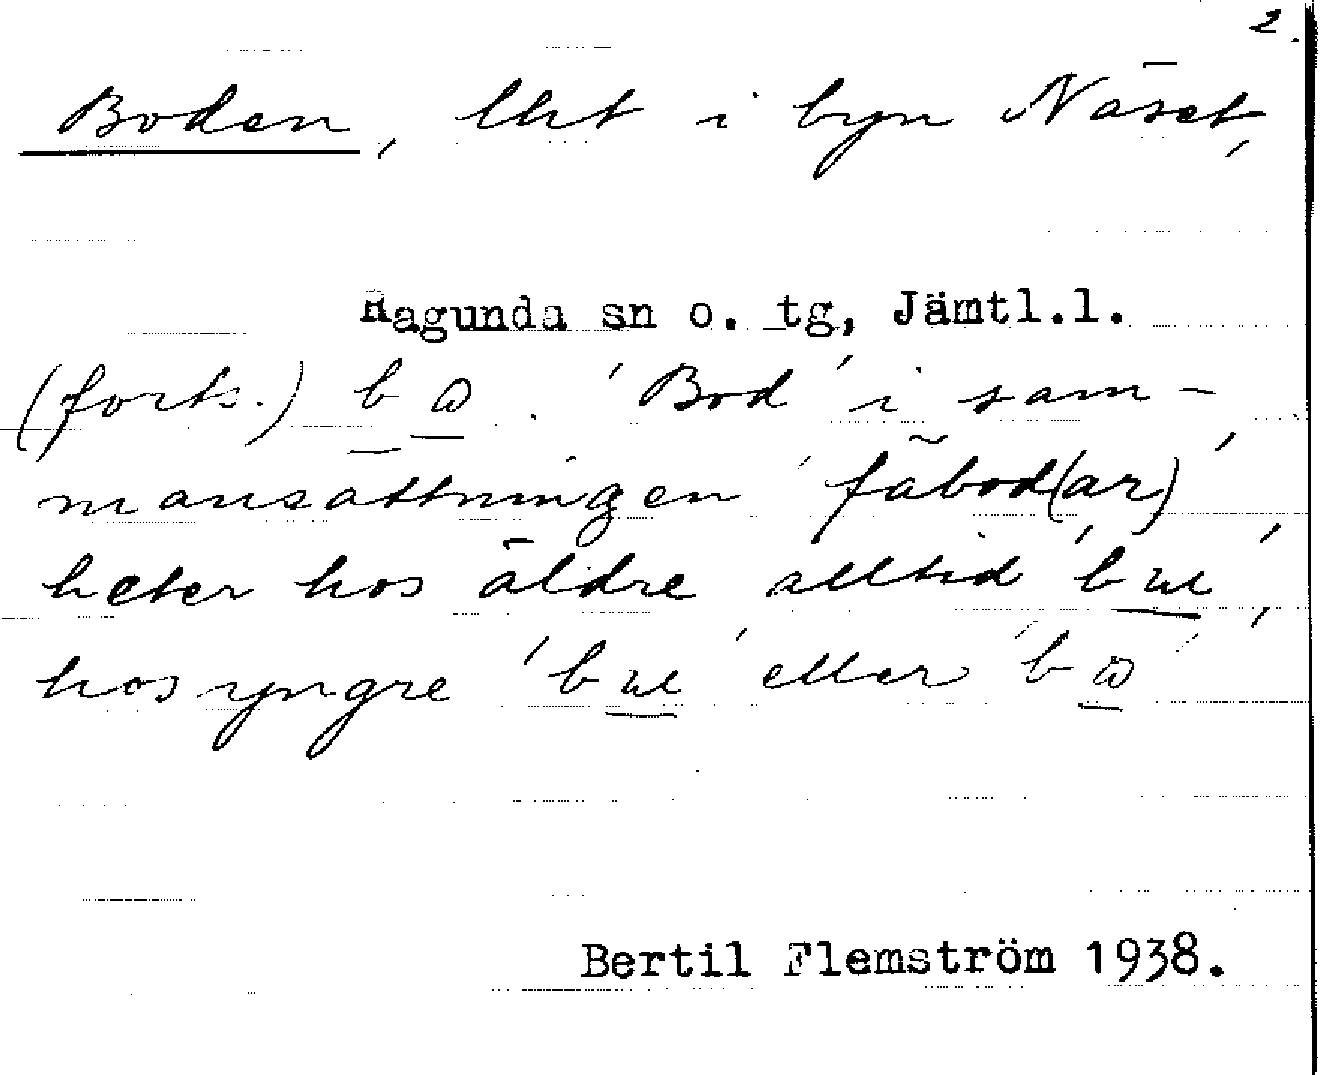 2.
Boden, lht i byn Näset,
Ragunda sn o. tg, Jämtl.l.
(forts.) b ω. 'Bod' i sam-
mansättningen 'fäbod(ar)'
heter hos äldre alltid 'bɯ',
hos yngre 'bɯ' eller 'bω'
Bertil Flemström 1938.